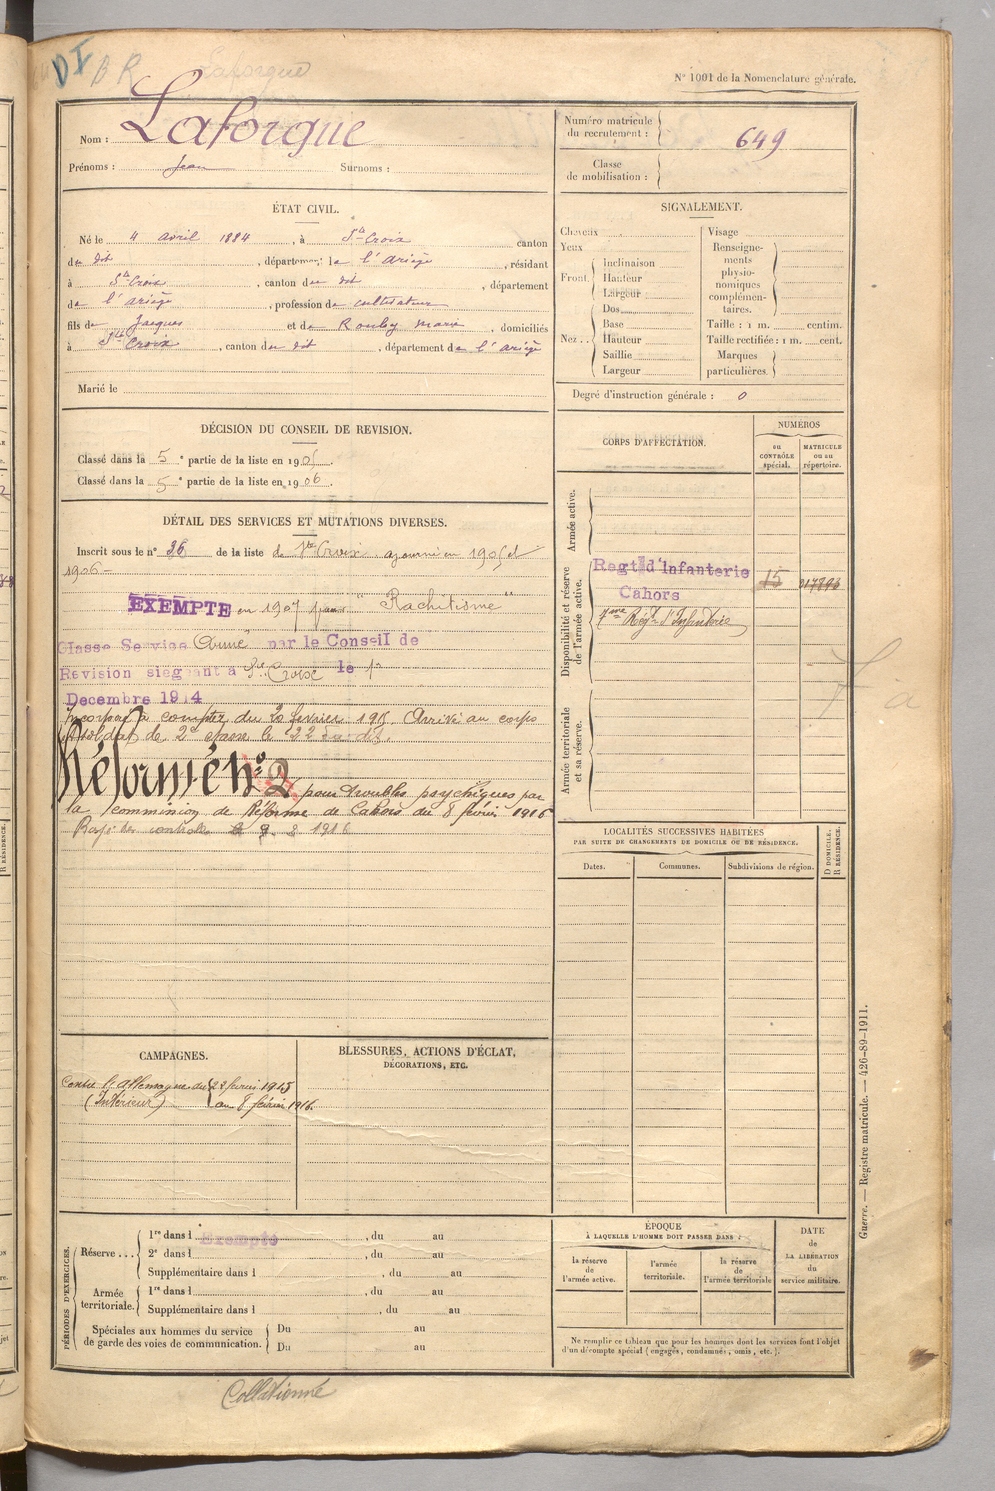 DI BR Laforgue
N° 1001 de la Nomenclature générale.
Nom : Laforgue
Prénoms : Jean Surnoms :
Numéro matricule du recrutement : 649
Classe de mobilisation :
ÉTAT CIVIL.
Né le 4 avril 1884, à Ste Croix canton
du dit, département de l'ariège, résidant
à Ste Croix, canton du dit, département
de l'ariège, profession de cultivateur
fils de Jacques et de Rouby Marie, domiciliés
à Ste Croix, canton du dit, département de l'ariège
Marié le
SIGNALEMENT.
Cheveux
Yeux
Front. Inclinaison
Hauteur
Largeur
Nez... Dos
Base
Hauteur
Saillie
Largeur
Visage
Renseignements physionomiques complémentaires.
Taille : 1 m. centim.
Taille rectifiée : 1 m. cent.
Marques particulières.
Degré d'instruction générale : 0
DÉCISION DU CONSEIL DE REVISION.
Classé dans la 5e partie de la liste en 1905.
Classé dans la 5e partie de la liste en 1906.
CORPS D'AFFECTATION.
NUMÉROS
au CONTRÔLE spécial.
MATRICULE ou au répertoire.
Armée active.
Disponibilité et réserve de l'armée active.
Regt d'Infanterie 15
Cahors
7me Régt d'Infanterie
Armée territoriale et sa réserve.
DÉTAIL DES SERVICES ET MUTATIONS DIVERSES.
Inscrit sous le n° 36 de la liste de Ste Croix. ajourné en 1905 et
1906-
EXEMPTÉ en 1907 pour "Rachitisme"
Classé Service Armé par le Conseil de
Révision siégeant à Ste Croix le 1er
Decembre 1914
Incorporé à compter du 20 février 1915. Arrivé au corps
soldat de 2e classe le 22 du dit.
Réformé n° 2 pour troubles psychiques par
la commission de Réforme de Cahors du 8 février 1916
Rayé des contrôles le 9. 2 1916
LOCALITÉS SUCCESSIVES HABITÉES
PAR SUITE DE CHANGEMENTS DE DOMICILE OU DE RÉSIDENCE.
Dates. Communes. Subdivisions de région. D DOMICILE. R RÉSIDENCE.
CAMPAGNES.
Contre l'Allemagne du 22 février 1915
(Intérieur) au 8 février 1916.
BLESSURES, ACTIONS D'ÉCLAT,
DÉCORATIONS, ETC.
PÉRIODES D'EXERCICES.
Réserve... 1re dans l Exempté, du au
2e dans l, du au
Supplémentaire dans l, du au
Armée territoriale. 1re dans l, du au
Supplémentaire dans l, du au
Spéciales aux hommes du service de garde des voies de communication. Du au
Du au
ÉPOQUE
À LAQUELLE L'HOMME DOIT PASSER DANS :
la réserve de l'armée active.
l'armée territoriale.
la réserve de l'armée territoriale
DATE de LA LIBÉRATION du service militaire.
Ne remplir ce tableau que pour les hommes dont les services font l'objet
d'un décompte spécial (engagés, condamnés, omis, etc.).
Guerre. — Registre matricule. — 426-89-1911.
Collationné